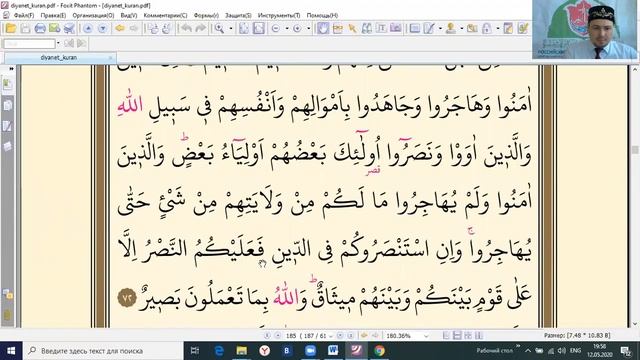 diyanet_kuran.pdf - Foxit Phantom - [diyanet_kuran.pdf]
Файл Правка Организатор(U) Вид Документ(D) Комментарии(C) Формы(R) Защита(E) Инструменты(T) Помощь(H)
diyanet_kuran
اٰمَنُوا وَهَاجَرُوا وَجَاهَدُوا بِاَمْوَالِهِمْ وَاَنْفُسِهِمْ ف۪ي سَب۪يلِ اللّٰهِ
وَالَّذ۪ينَ اٰوَوْا وَنَصَرُٓوا اُو۬لٰٓئِكَ بَعْضُهُمْ اَوْلِيَٓاءُ بَعْضٍۜ وَالَّذ۪ينَ
قصر
اٰمَنُوا وَلَمْ يُهَاجِرُوا مَا لَكُمْ مِنْ وَلَايَتِهِمْ مِنْ شَيْءٍ حَتّٰى
يُهَاجِرُواۚ وَاِنِ اسْتَنْصَرُوكُمْ فِي الدّ۪ينِ فَعَلَيْكُمُ النَّصْرُ اِلَّا
عَلٰى قَوْمٍ بَيْنَكُمْ وَبَيْنَهُمْ م۪يثَاقٌۜ وَاللّٰهُ بِمَا تَعْمَلُونَ بَص۪يرٌ ٧٢
185 (187 / 61
180.36%
Размер: [7.48 * 10.83 В]
Введите здесь текст для поиска
Рабочий стол
ENG
19:58
12.05.2020